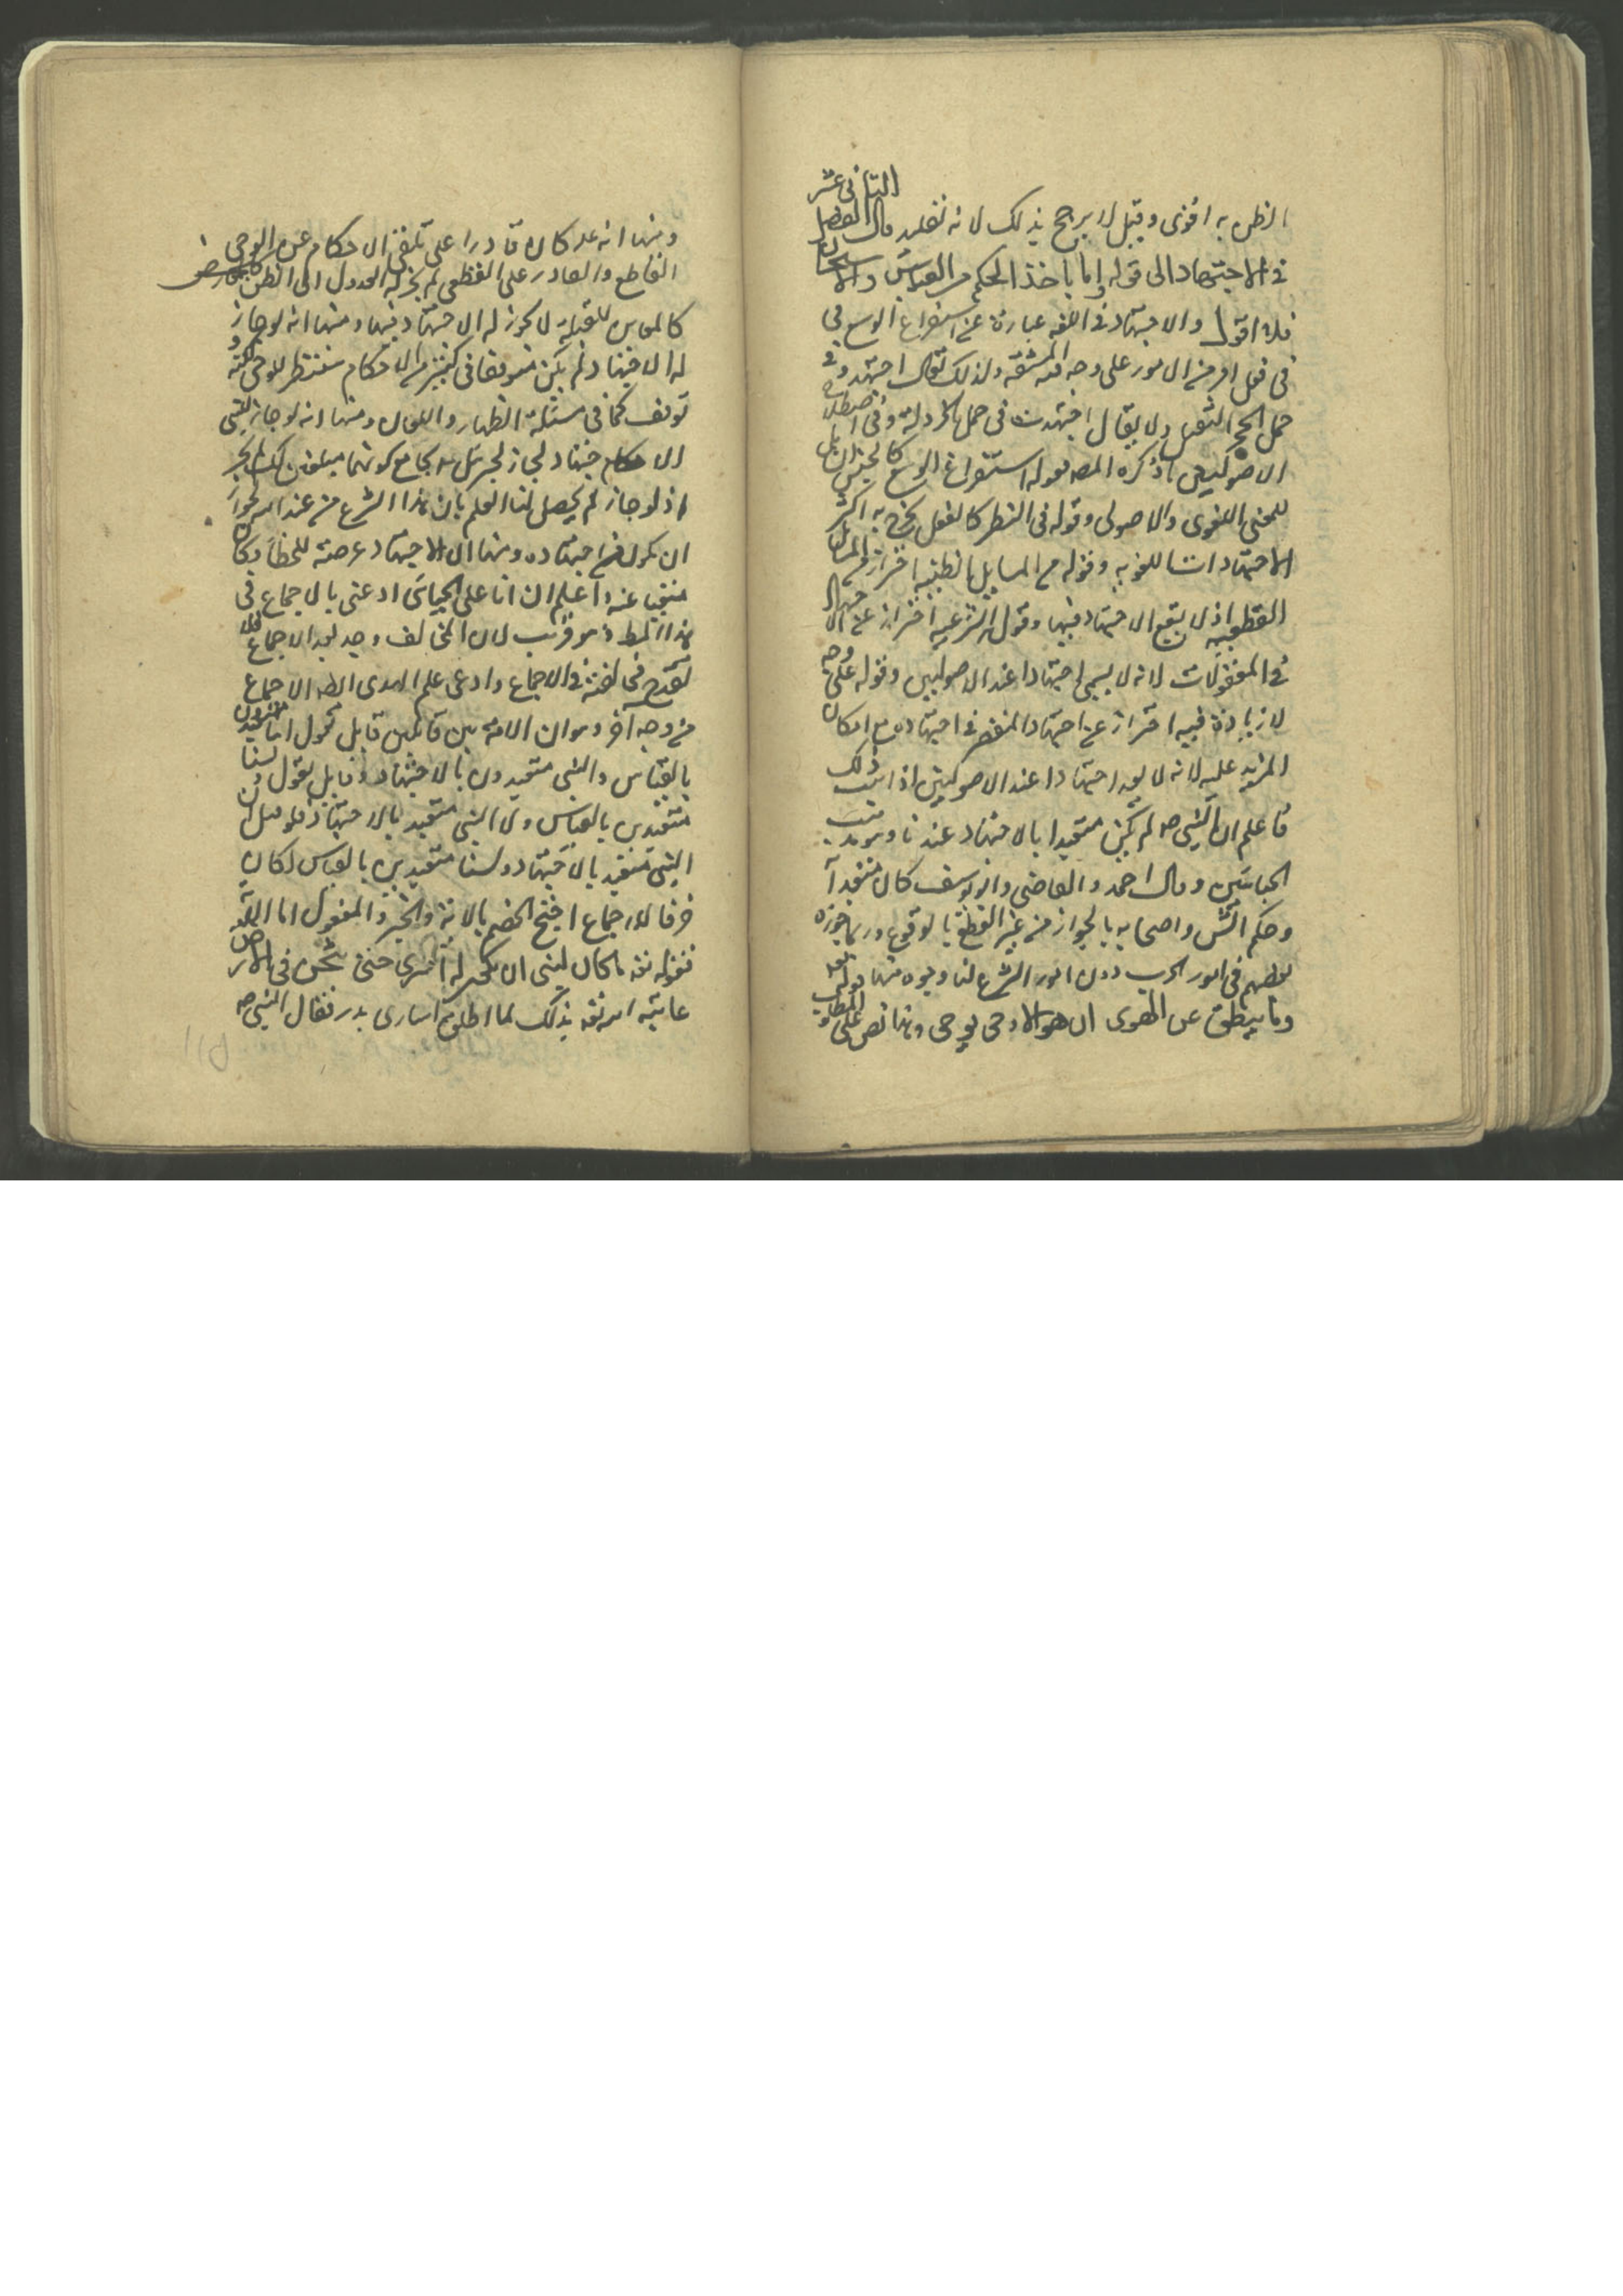 الظن به اقوى وقيل لا يرجح بذلك لانه تقليد قال الفصل الثانى عشر
فى الاجتهاد الى قوله واما باخذ الحكم من القياس والاستحسان
فلا اقول والاجتهاد فى اللغه عبارة عن استفراغ الوسع فى
فى فعل امر من الامور على وجه المشقه ولذلك يقال اجتهد فى
حمل الحجر الثقيل ولا يقال اجتهدت فى حمل الخردلة وفى اصطلاح
الاصوليين ما ذكره المصه فقوله استفراغ الوسع كالجنس الشامل
للمعنى اللغوى والاصولى وقوله فى النظر كالفصل يخرج به اكثر
الاجتهادات اللغويه وقوله من المسايل الظنيه احتراز من المسائل
القطعيه اذ لا يقع الاجتهاد فيها وقوله الشرعيه احتراز عن الاجتهاد
فى المعقولات لانه لا يسمى اجتهادا عند الاصوليين وقوله على وجه
لا زيادة فيه احتراز عن اجتهاد المقصر فى اجتهاده مع امكان
المزيد عليه لانه لا يعد اجتهادا عند الاصوليين اذا ثبت ذلك
فاعلم ان النبى صه لم يكن متعبدا بالاجتهاد عندنا وهو مذهب
الجبائيين وقال احمد والقاضى وابو يوسف كان متعبدا
وحكم الش واصحابه بالجواز من غير القطع بالوقوع وربما جوزه
بعضهم فى امور الحرب دون امور الشرع لنا وجوه منها قوله تعه
وما ينطق عن الهوى ان هو الا وحى يوحى وهذا نص على المطلوب
ومنها انه عله كان قادرا على تلقى الاحكام عن الوحى
القاطع والقادر على القطعى لم يجز له العدول الى الظن
كالمعاين للقبلة لا يجوز له الاجتهاد فيها ومنها انه لو جاز
له الاجتهاد لم يكن متوقفا فى كثير من الاحكام منتظر للوحى لكنه
توقف كما فى مسئلة الظهار واللعان ومنها انه لو جاز للنبى
الاجتهاد لجاز لجبرئيل بجامع كونهما مبلغين
اذ لو جاز لم يحصل لنا العلم بان هذا الشرع من عند الله لجواز
ان يكون من اجتهاده ومنها ان الاجتهاد عرضة للخطا وكان
منفيا عنه واعلم ان ابا على الجبائى ادعى بالاجماع فى
هذا المط وهو قريب لان المخالف وجد بعد الاجماع فلا
تقدح مخالفته فى الاجماع وادعى علم الهدى الاجماع
من وجه اخر وهو ان الامة بين قائلين قايل يقول انا متعبدون
بالقياس والنبى متعبد بالاجتهاد وقايل يقول لسنا
متعبدين بالقياس ولا النبى متعبد بالاجتهاد فلو قيل ان
النبى متعبد بالاجتهاد ولسنا متعبدين بالقياس لكان
خرقا للاجماع احتج الخصم بالاية والخبر والمعقول اما الاية
فقوله تعه ما كان لنبى ان يكون له اسرى حتى يثخن فى الارض
عاتبه الله تعه بذلك لما اطلق اسارى بدر فقال النبى صه